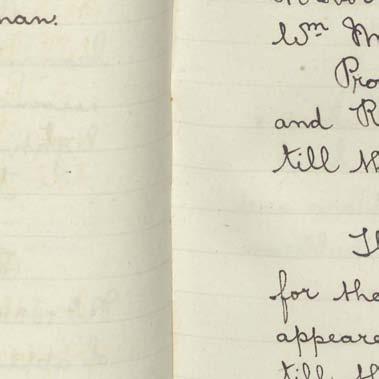 man.
Wm
Pro
and R
till th
Th
for the
appeare
till th